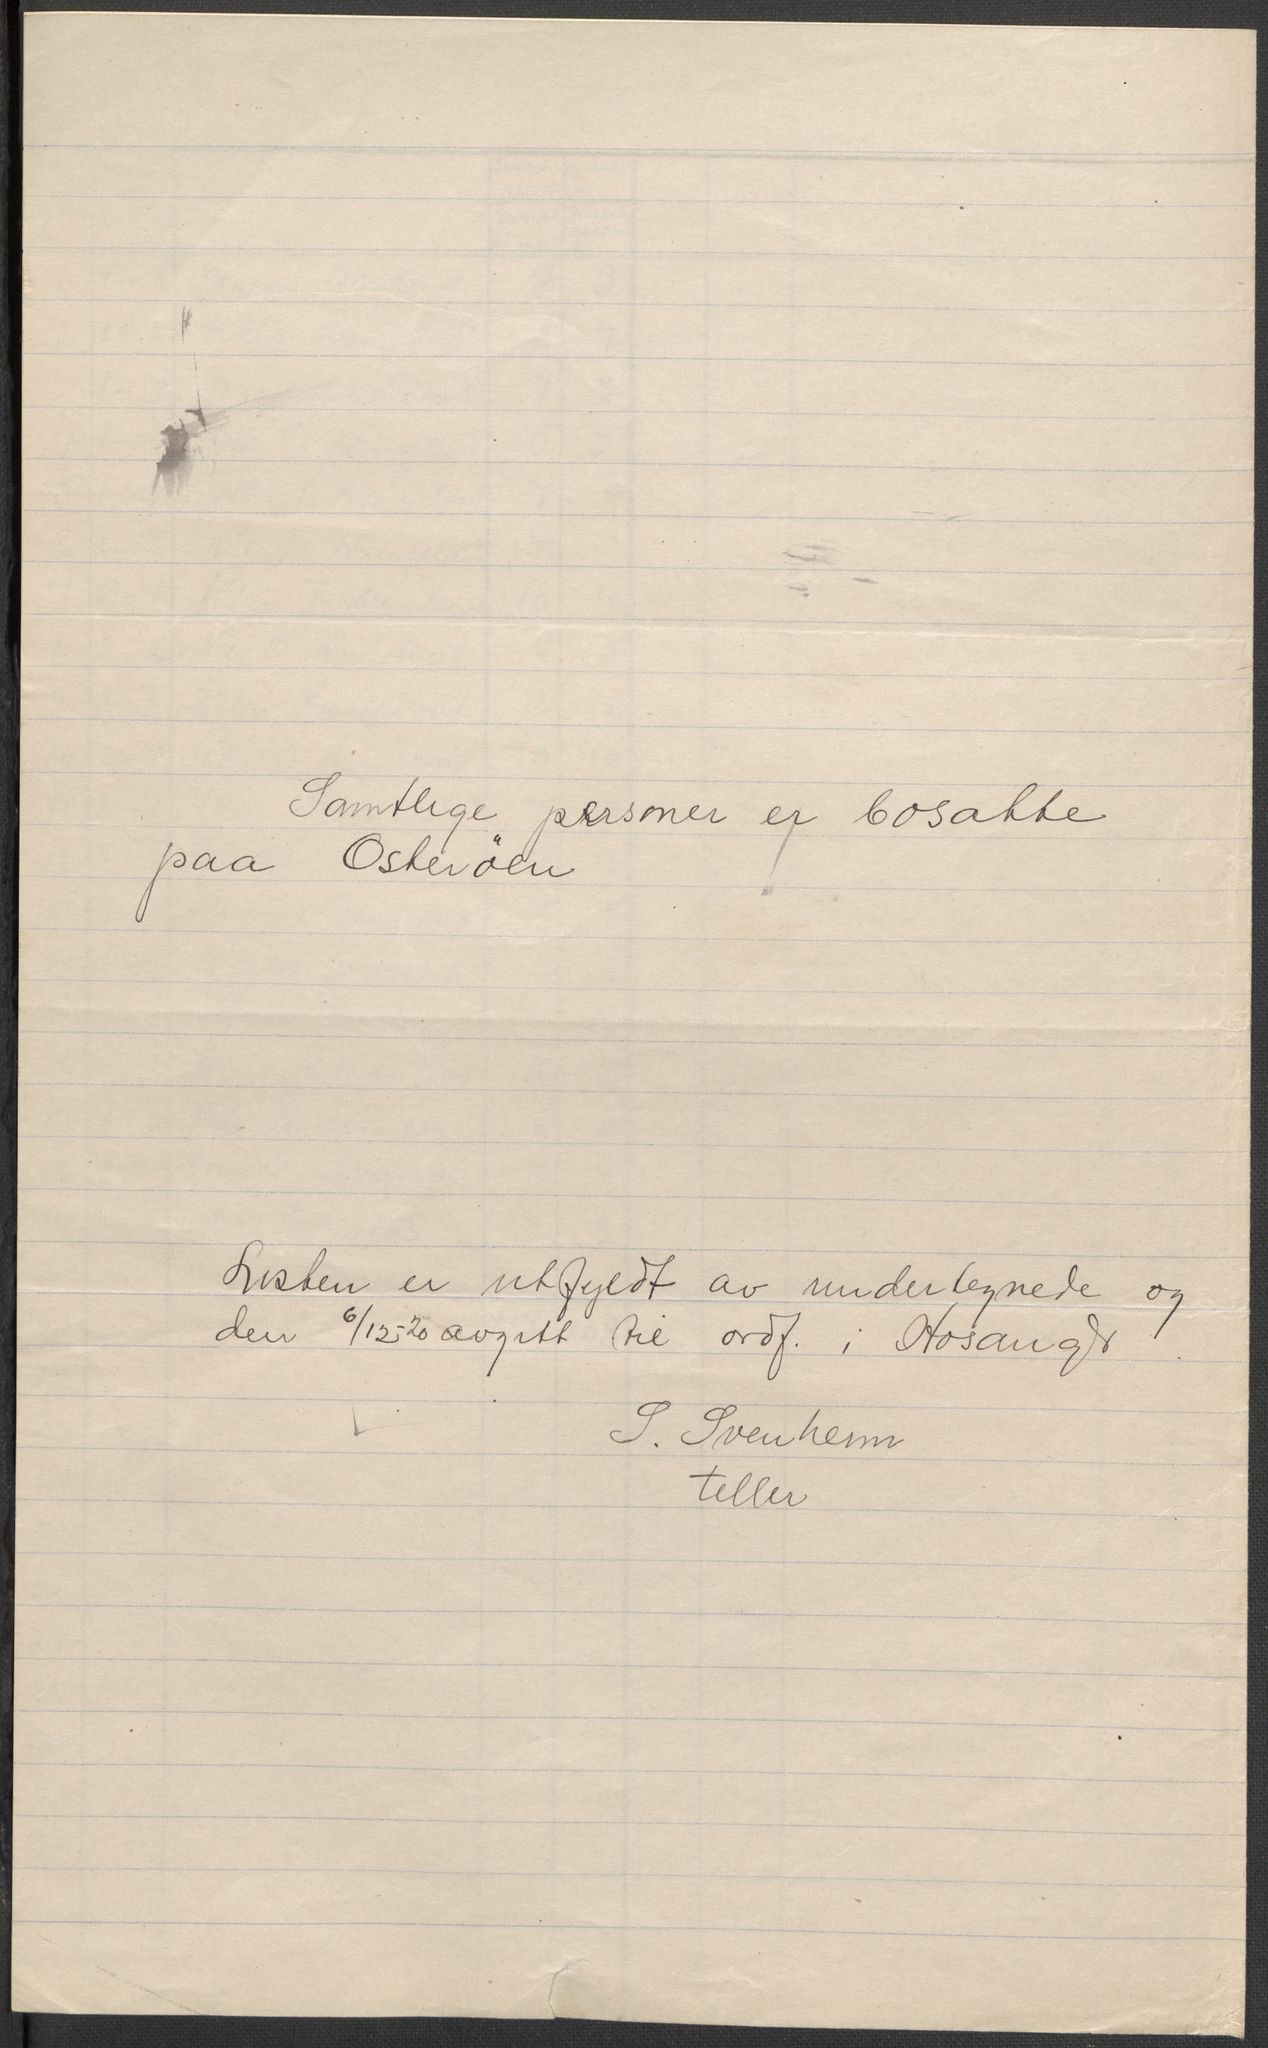 Samtlige personer er bosatte
paa Osteröen
Listen er utfyldt av undertegnede og
den 6/12-20 avgitt til ordf. i Hosanger
S. Svenheim
teller